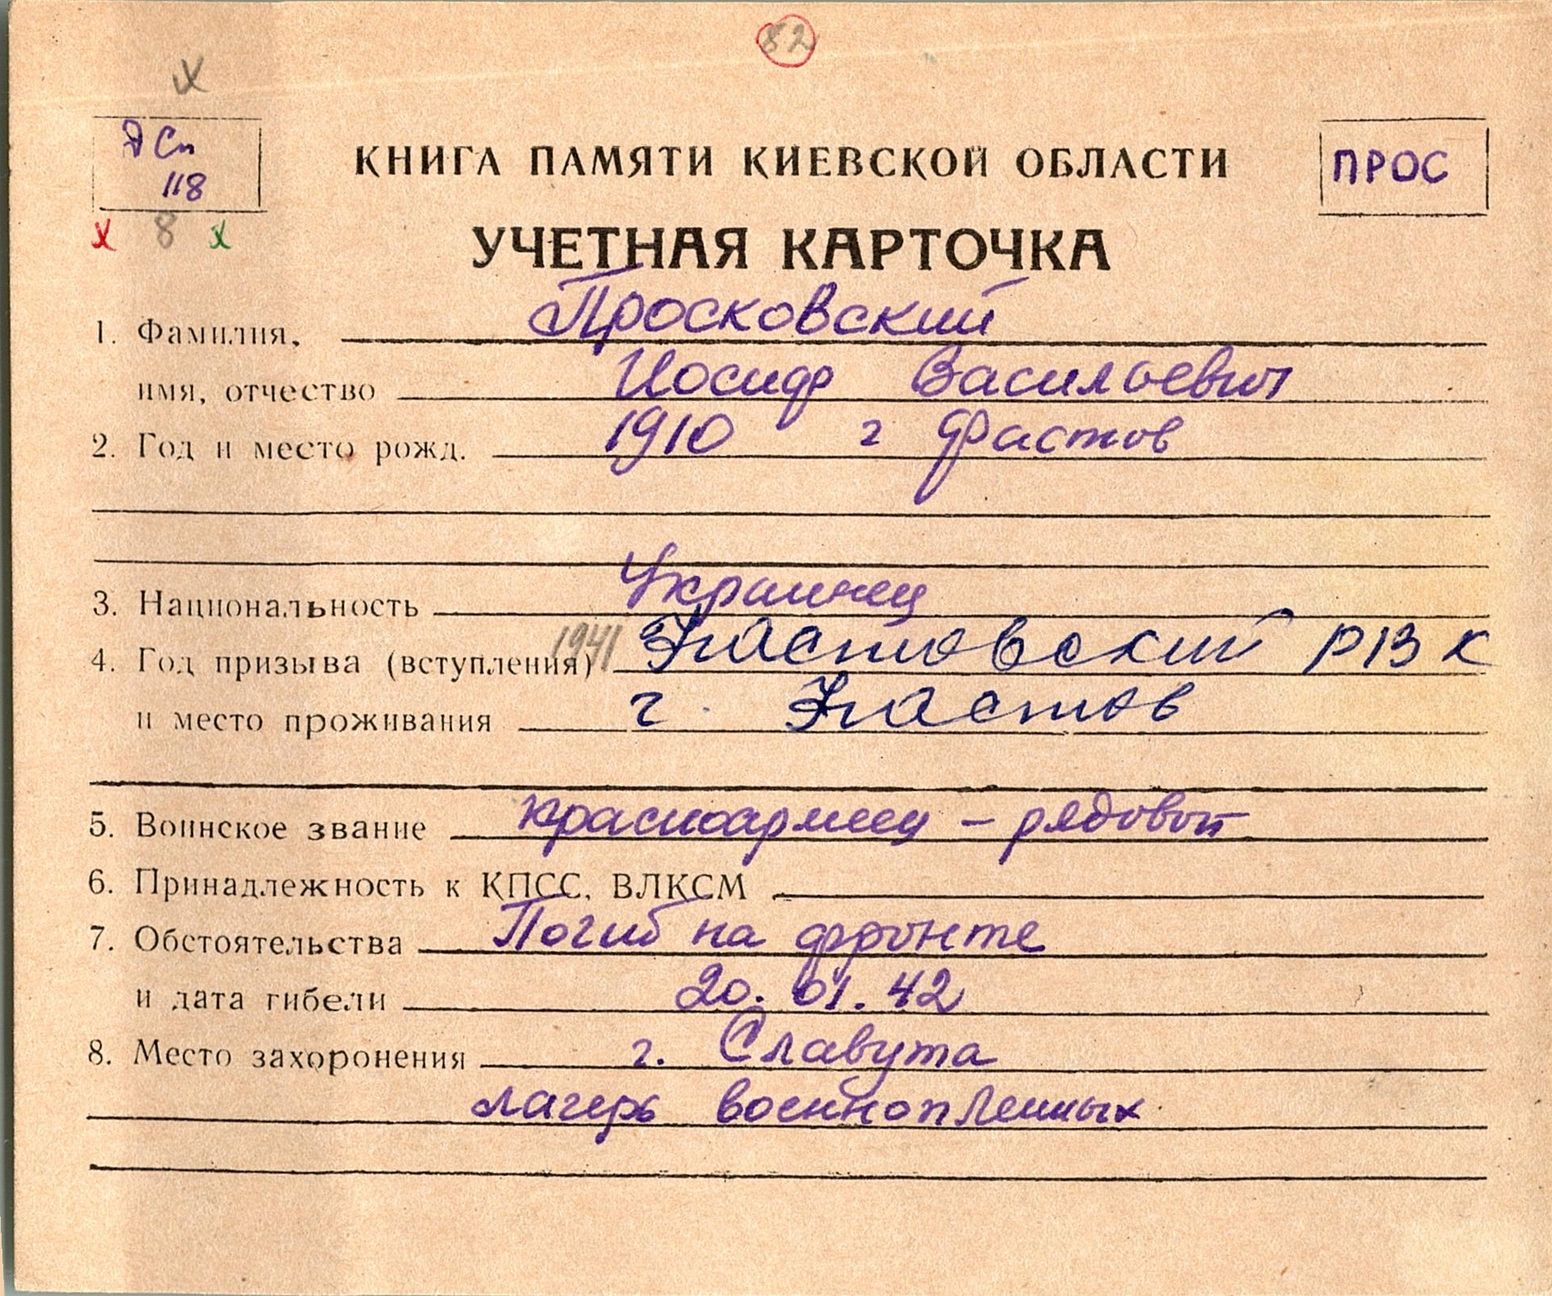 82
х
ДСп
118
х 8 х
КНИГА ПАМЯТИ КИЕВСКОЙ ОБЛАСТИ
ПРОС
УЧЕТНАЯ КАРТОЧКА
1. Фамилия, Просковский
имя, отчество Иосиф Васильевич
2. Год и место рожд. 1910 г Фастов
3. Национальность Украинец
4. Год призыва (вступления) 1941 Фастовский РВК
и место проживания г. Фастов
5. Воинское звание красноармеец - рядовой
6. Принадлежность к КПСС, ВЛКСМ
7. Обстоятельства Погиб на фронте
и дата гибели 20.01.42
8. Место захоронения г. Славута
лагерь военнопленных